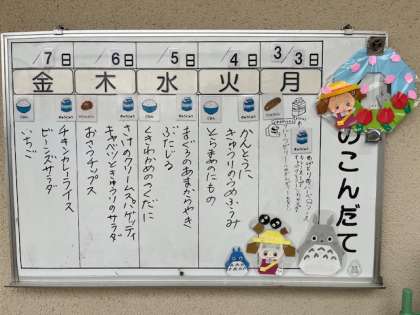 のこんだて
3/3日
月
4日
火
かんとうに
きゅうりのうめふうみ
とらまめのにもの
5日
水
まぐろのあまからやき
ぶたじる
くきわかめのつくだに
6日
木
さけのクリームスパゲッティ
キャベツときゅうりのサラダ
おさつチップス
7日
金
チキンカレーライス
ビーンズサラダ
いちご